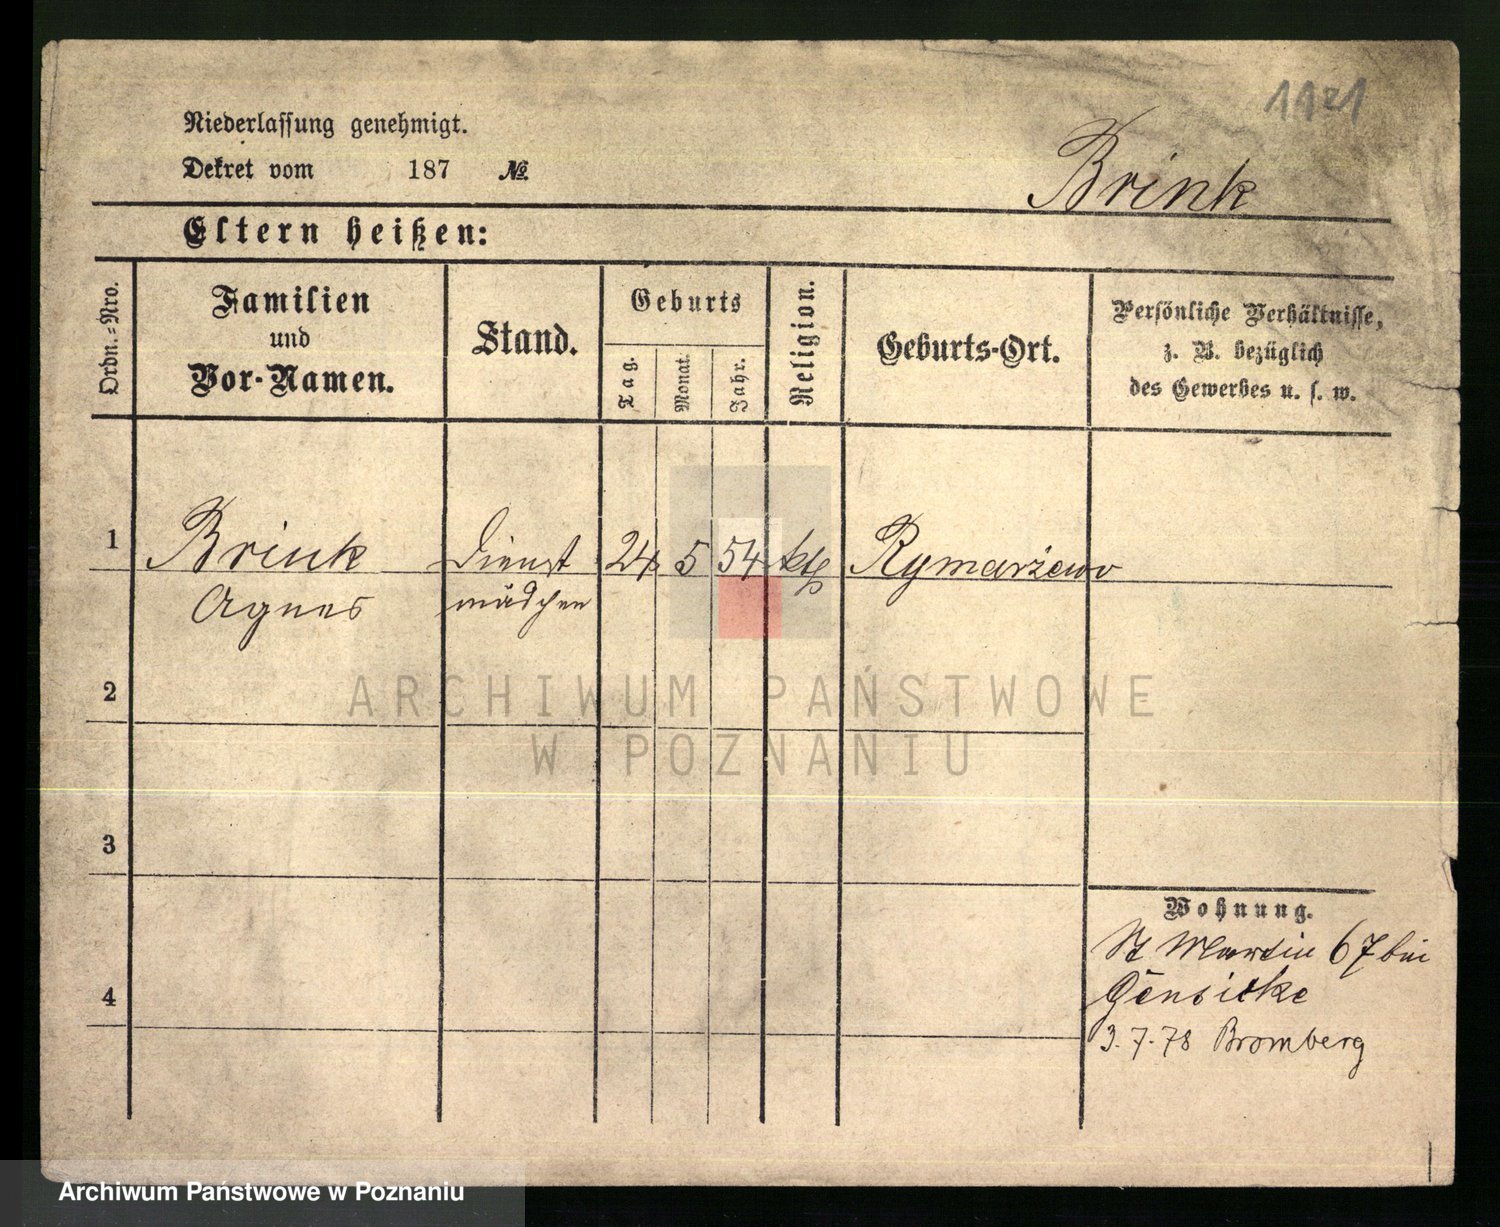 1121
Niederlassung genehmigt.
Dekret vom 187 No.
Brink
Eltern heißen:
Ordn.-Nro.
Familien
und
Vor-Namen.
Stand.
Geburts
Tag.
Monat.
Jahr.
Religion.
Geburts-Ort.
Persönliche Verhältnisse,
z. B. bezüglich
des Gewerbes u. s. w.
1 Brink Dienst 24 5 54 kth Rymarżewo
Agnes mädchen
2
ARCHIWUM PAŃSTWOWE
W POZNANIU
3
Wohnung.
St Martin 67 bei
Gensicke
4
3.7.78 Bromberg
Archiwum Państwowe w Poznaniu